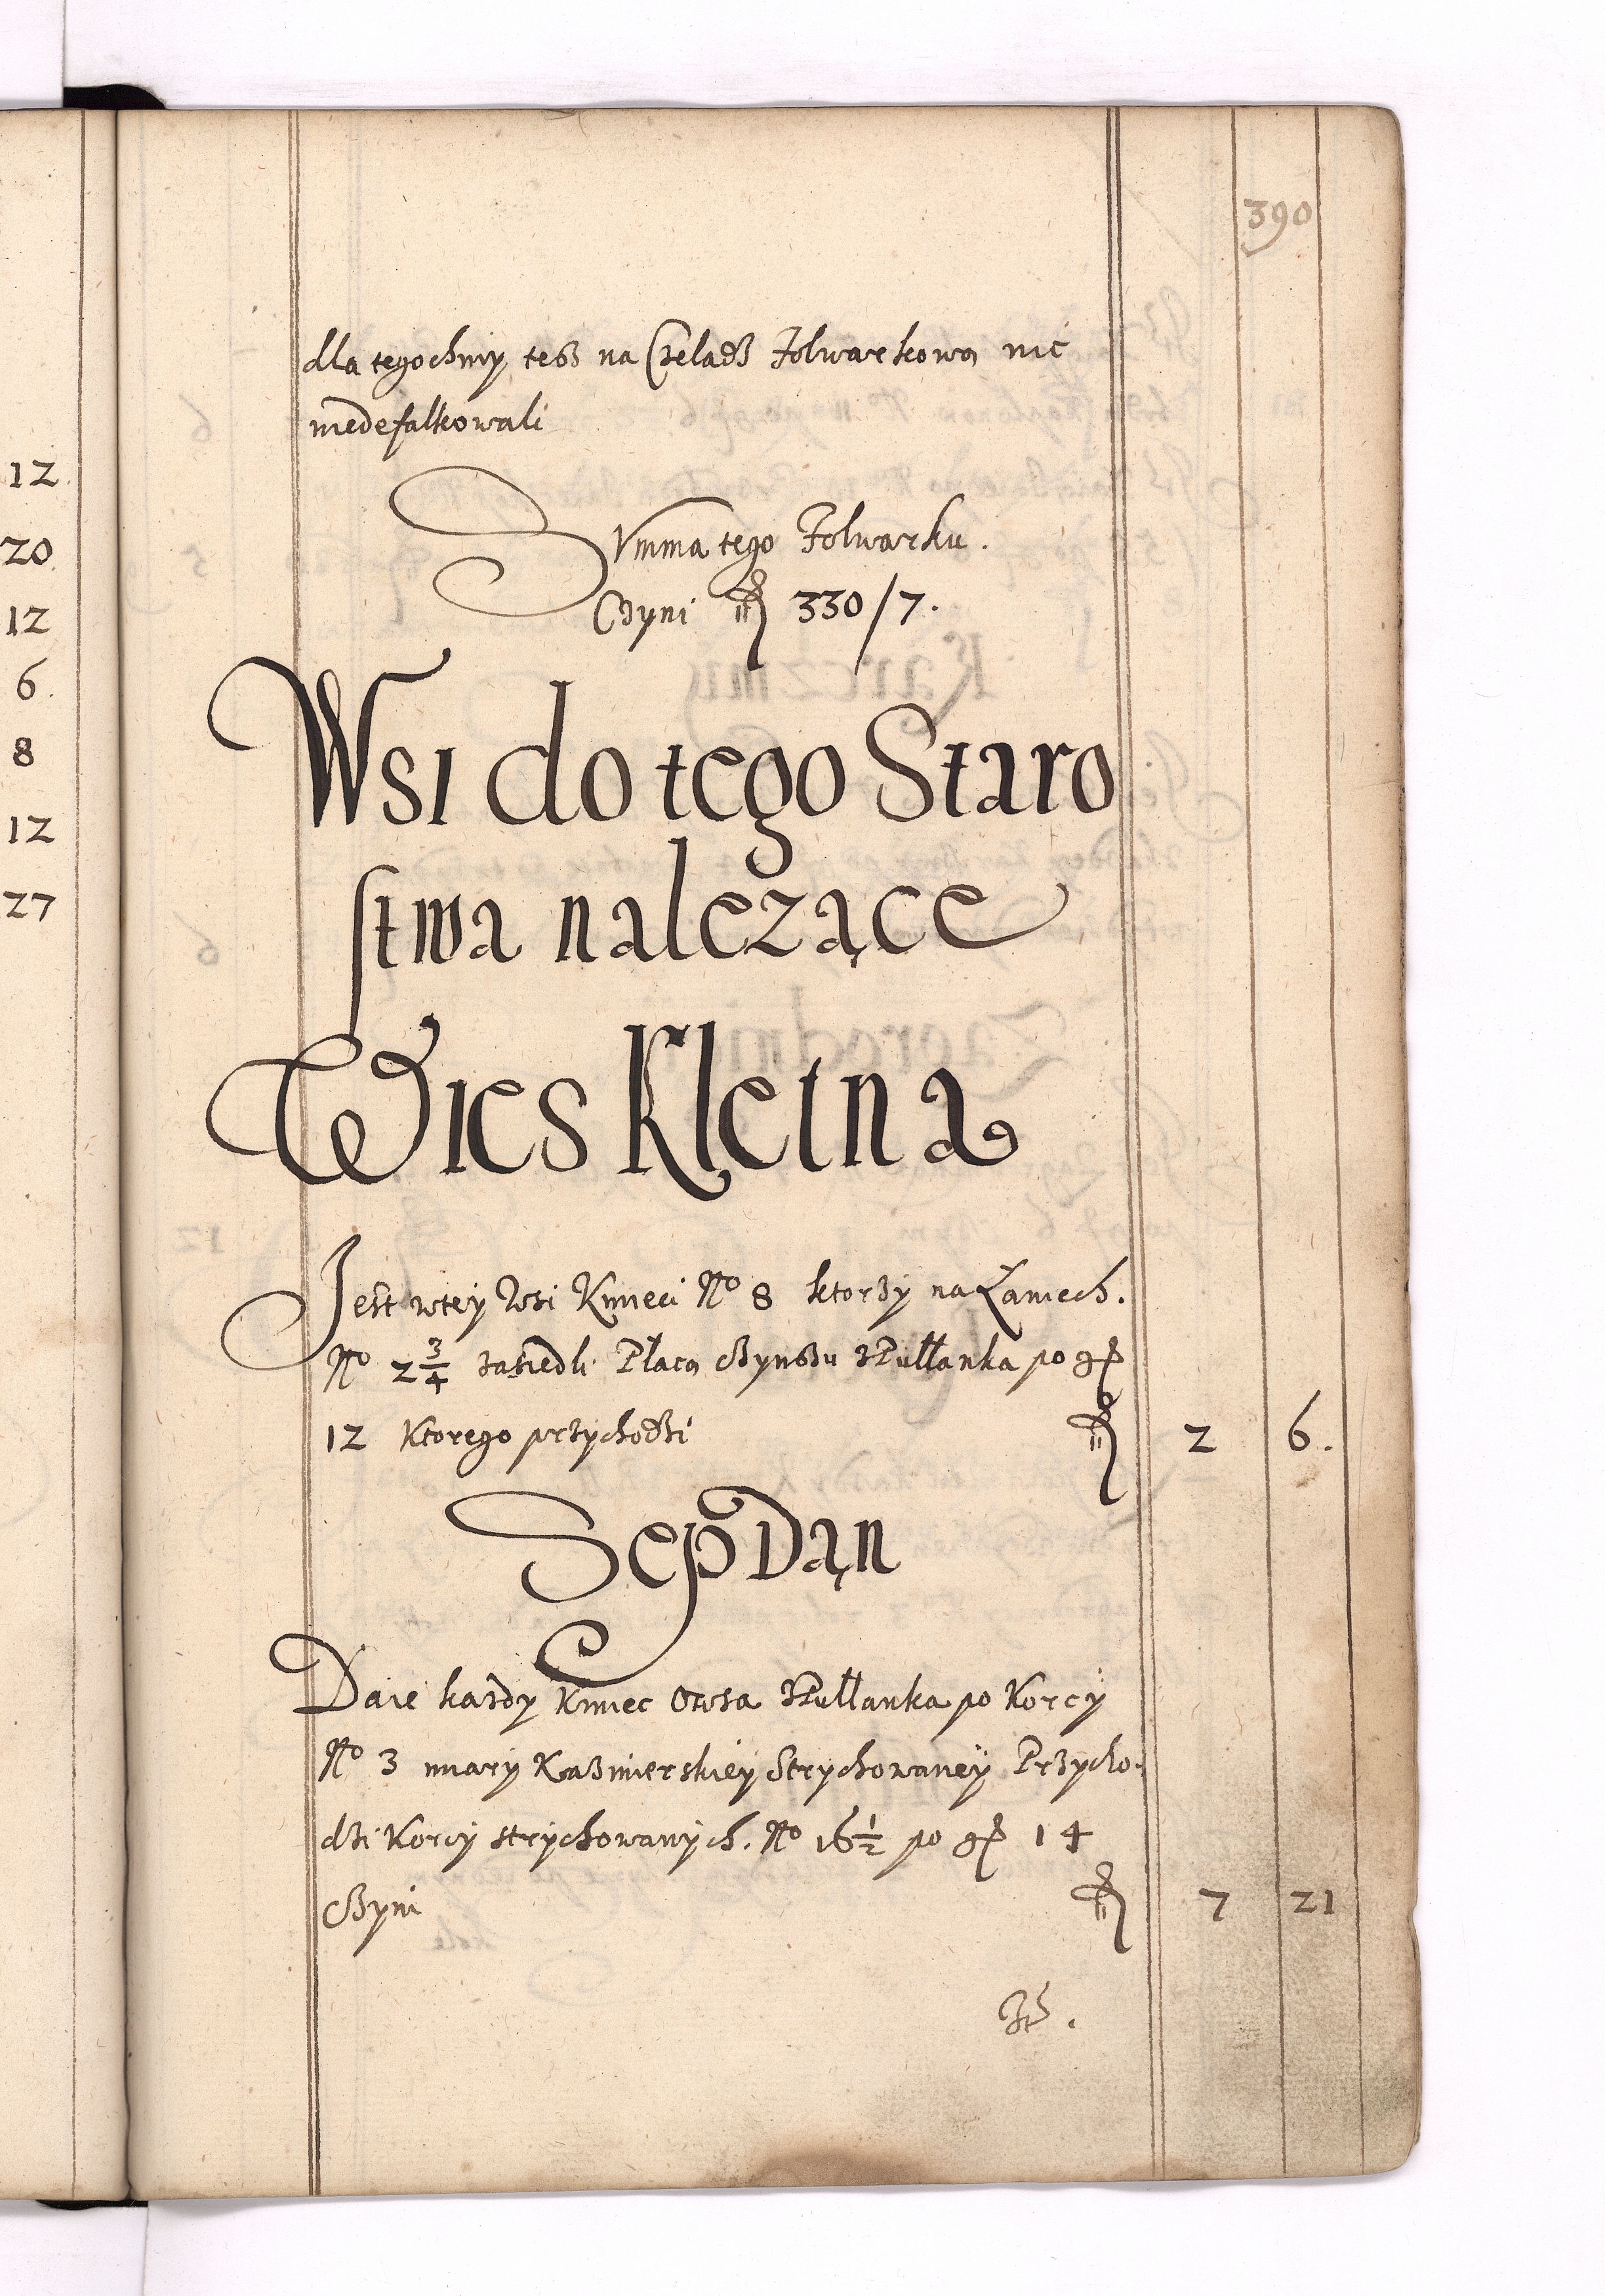 390
dla tegochmy tesz na Czeladz Folwarkową nic
niedefalkowali
Summa tego Folwarku.
Czyni 330/7.
Wsi do tego Staro
stwa należące
Wies Kletna
Jest wtey Wsi Kmieci No 8 ktorzy na Łaniech.
No 2 3/4 zasiedli Płacą Czynszu zPułłanka po gr
12 Ktorego przychodzi 2 6.
Sep Dan
Daie kazdy Kmiec Owsa zPułłanka po Korcy
No 3 miary Kazmierskiey Strychowaney Przycho-
dzi Korcy strychowanych. No 16 1/2 po gr 14
Czyni 7 21
12
20
12
6.
8
12
27